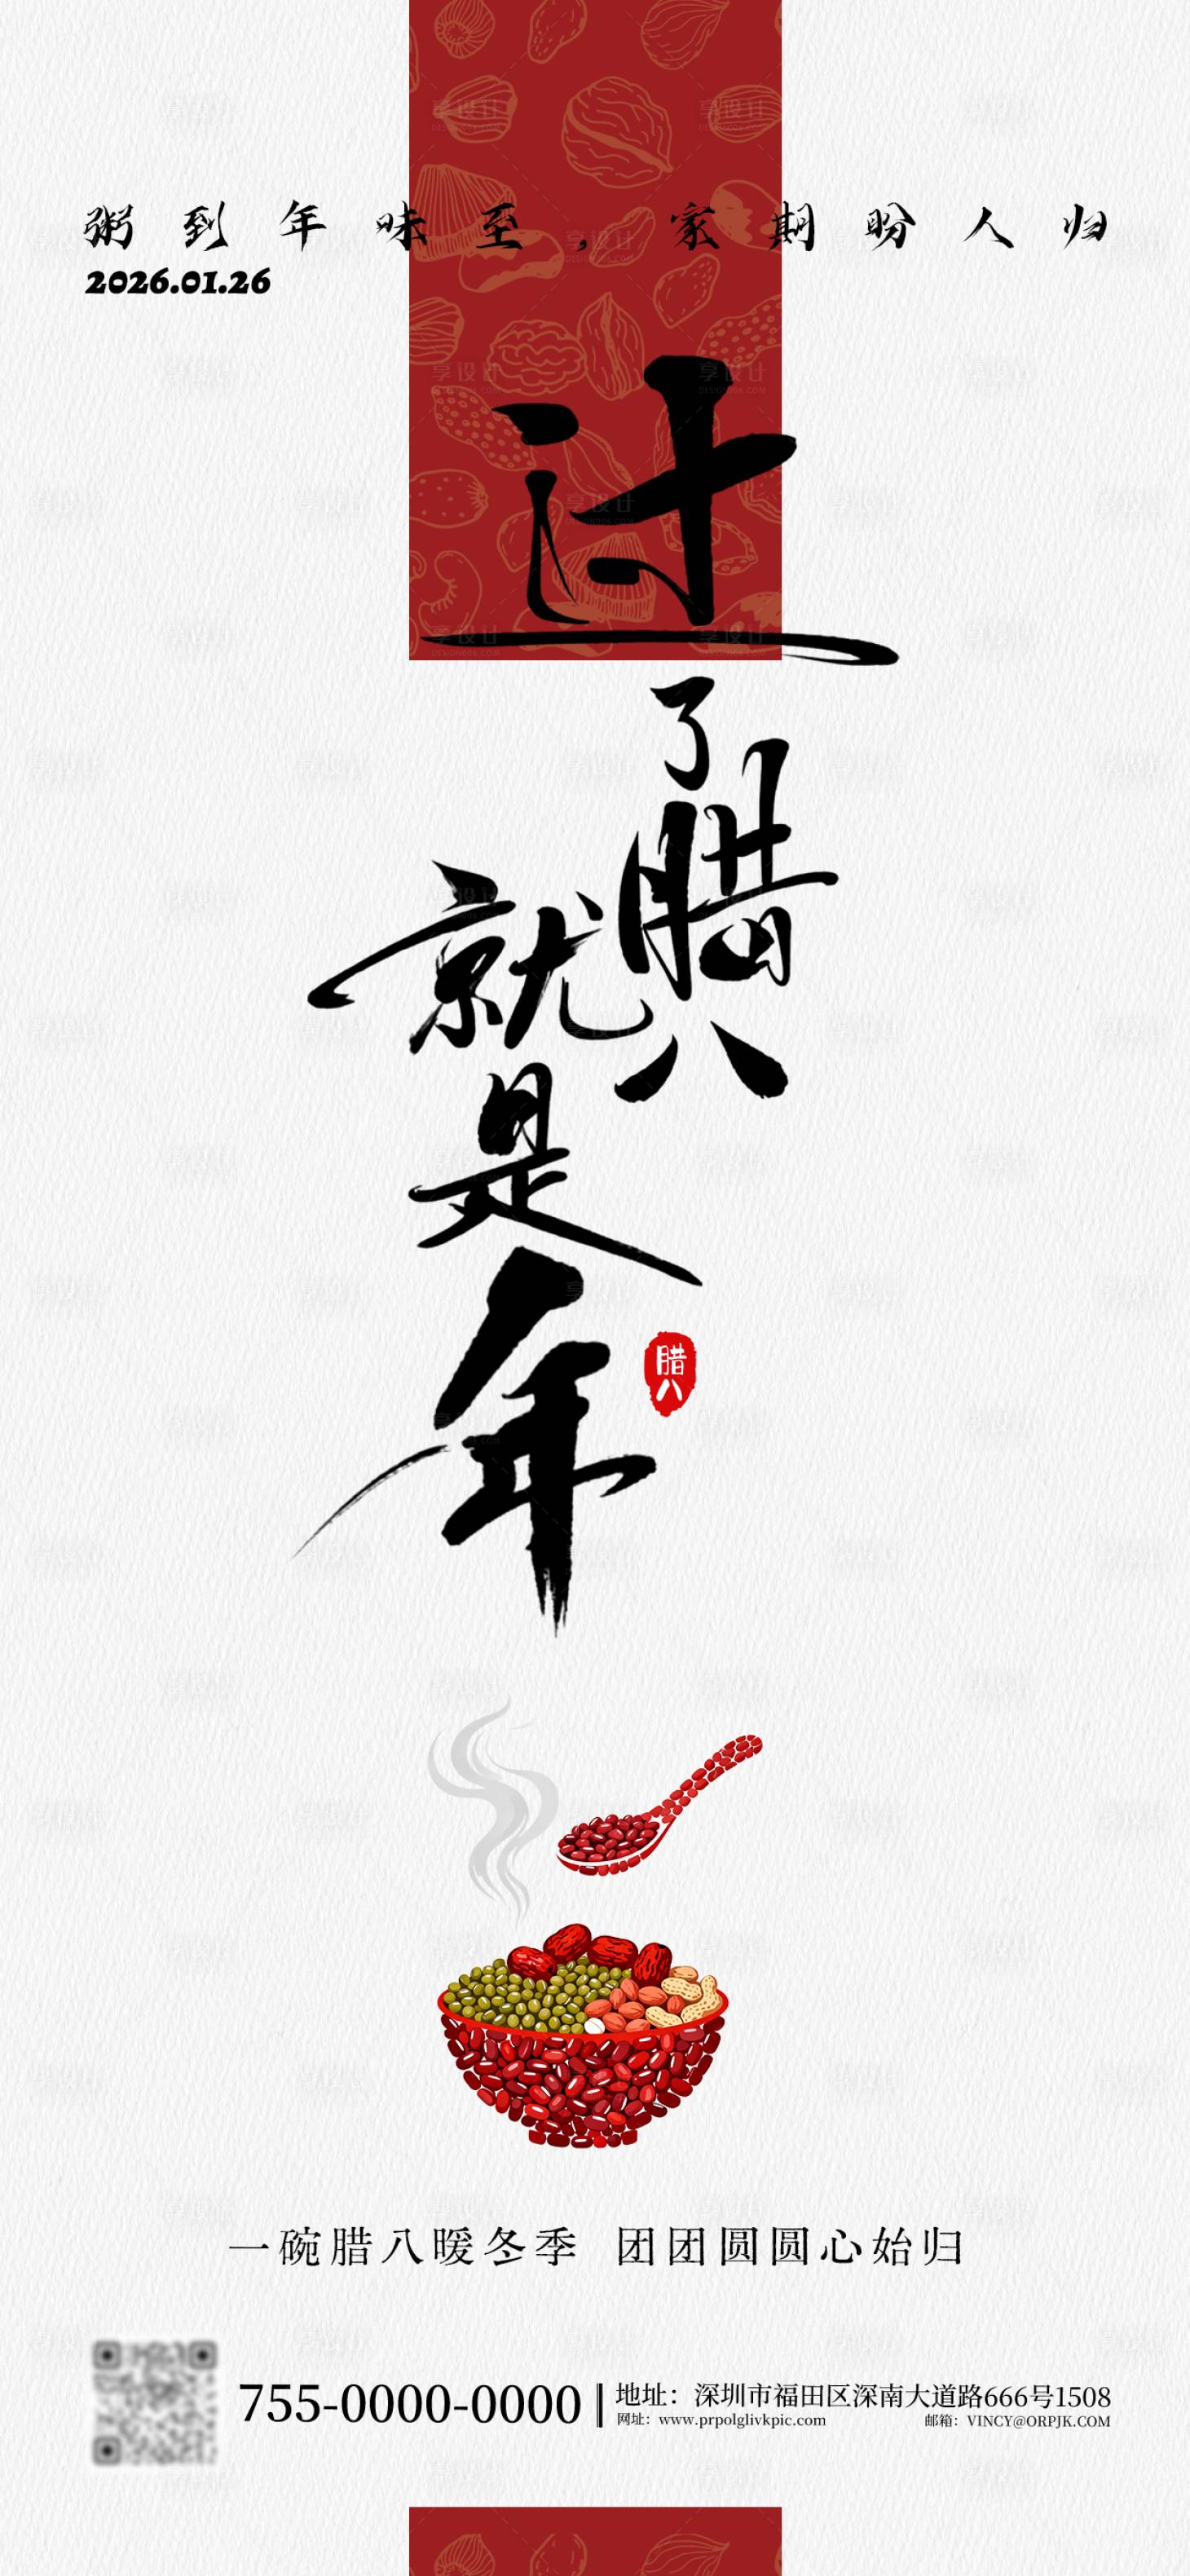 粥到年味至，家期盼人归
2026.01.26
过了腊八
就是年
腊八
一碗腊八暖冬季 团团圆圆心始归
755-0000-0000
地址：深圳市福田区深南大道路666号1508
网址：www.prpolglivkpic.com 邮箱：VINCY@ORPJK.COM
享设计
DESIGN006.COM